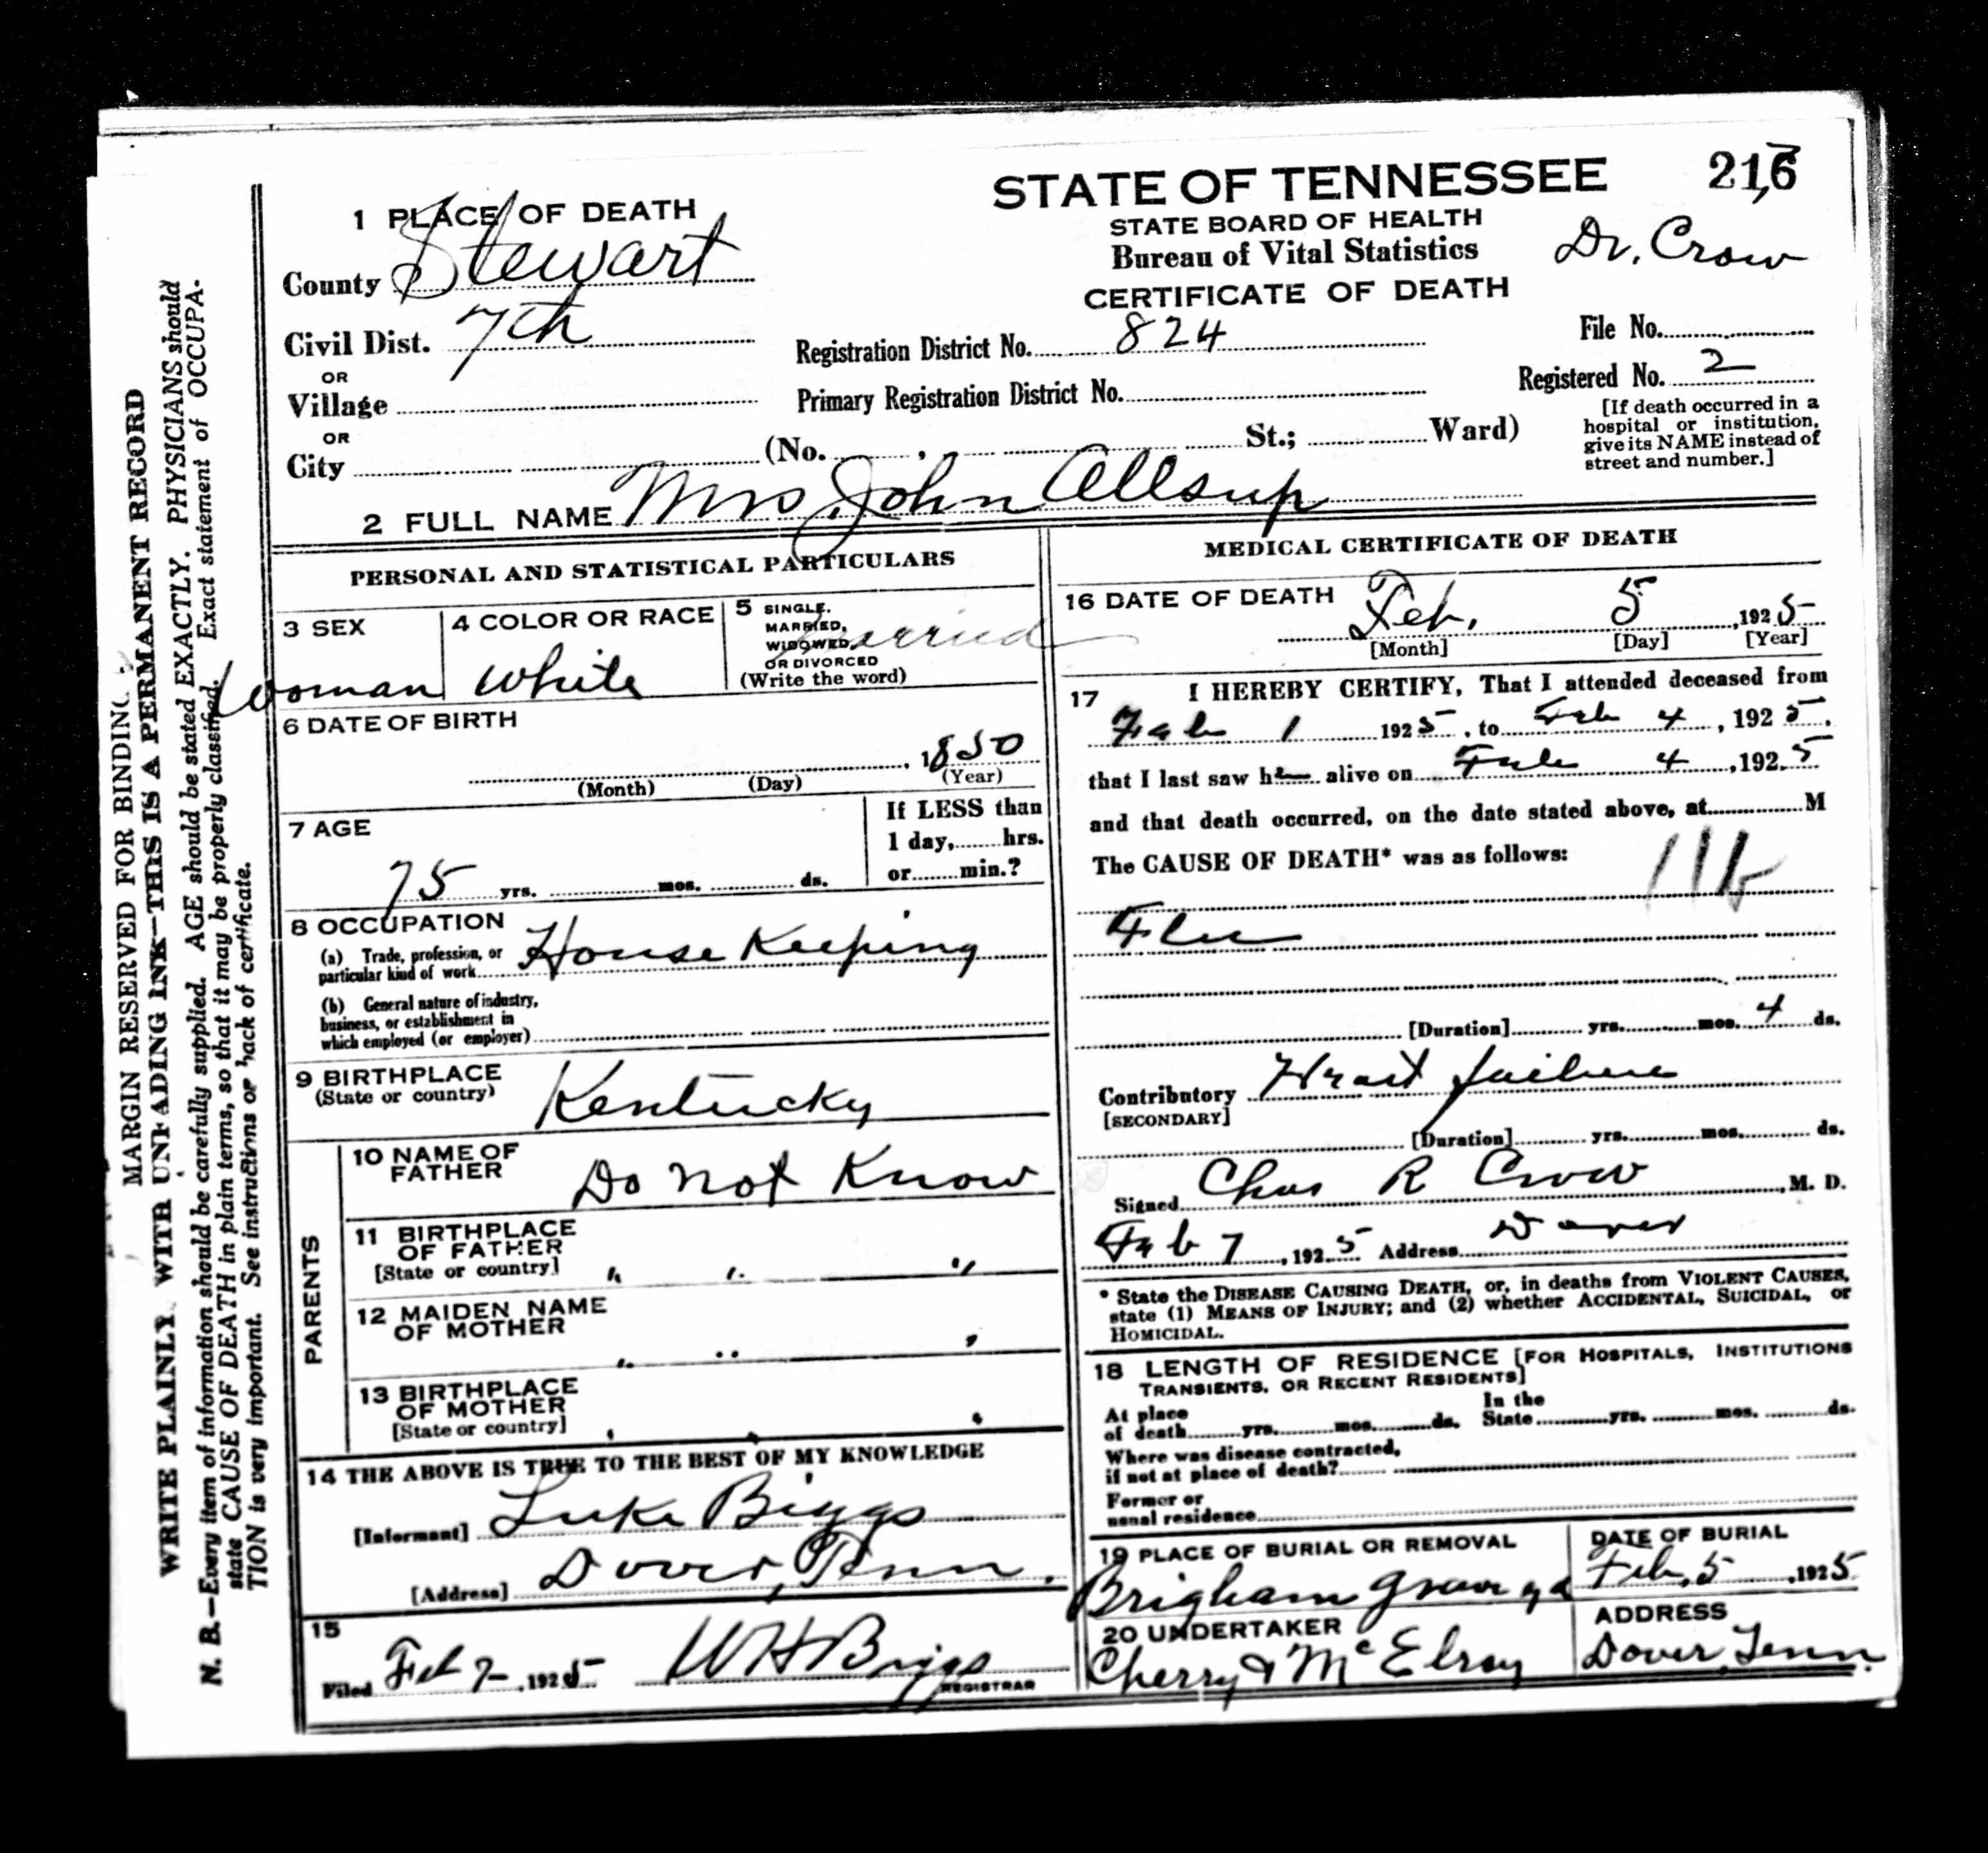 216
STATE OF TENNESSEE
STATE BOARD OF HEALTH
Bureau of Vital Statistics
CERTIFICATE OF DEATH
Dr. Crow
1 PLACE OF DEATH
County Stewart
Civil Dist. 7th
OR
Village
OR
City
Registration District No. 824
Primary Registration District No.
(No. , St.; Ward)
File No.
Registered No. 2
[If death occurred in a
hospital or institution,
give its NAME instead of
street and number.]
2 FULL NAME Mrs John Allsup
PERSONAL AND STATISTICAL PARTICULARS
3 SEX
Woman
4 COLOR OR RACE
White
5 SINGLE,
MARRIED,
WIDOWED,
OR DIVORCED
(Write the word)
married
6 DATE OF BIRTH
, 1850
(Month) (Day) (Year)
7 AGE
75 yrs. mos. ds.
If LESS than
1 day, hrs.
or min.?
8 OCCUPATION
(a) Trade, profession, or
particular kind of work House Keeping
(b) General nature of industry,
business, or establishment in
which employed (or employer)
9 BIRTHPLACE
(State or country) Kentucky
PARENTS
10 NAME OF
FATHER Do not Know
11 BIRTHPLACE
OF FATHER
[State or country] " " "
12 MAIDEN NAME
OF MOTHER
" " "
13 BIRTHPLACE
OF MOTHER
[State or country] " " "
14 THE ABOVE IS TRUE TO THE BEST OF MY KNOWLEDGE
[Informant] Luke Biggs
[Address] Dover, Tenn.
15
Filed Feb 7-, 1925 W H Briggs
REGISTRAR
MEDICAL CERTIFICATE OF DEATH
16 DATE OF DEATH
Feb. 5, 1925
[Month] [Day] [Year]
17 I HEREBY CERTIFY, That I attended deceased from
Feb 1 1925, to Feb 4, 1925,
that I last saw her alive on Feb 4, 1925
and that death occurred, on the date stated above, at M
The CAUSE OF DEATH* was as follows:
Flu
[Duration] yrs. mos. 4 ds.
Contributory Heart failure
[SECONDARY]
[Duration] yrs. mos. ds.
Signed Chas R Crow, M. D.
Feb 7, 1925 Address Dover
* State the DISEASE CAUSING DEATH, or, in deaths from VIOLENT CAUSES,
state (1) MEANS OF INJURY; and (2) whether ACCIDENTAL, SUICIDAL, or
HOMICIDAL.
18 LENGTH OF RESIDENCE [FOR HOSPITALS, INSTITUTIONS
TRANSIENTS, OR RECENT RESIDENTS]
At place
of death yrs. mos. ds.
In the
State yrs. mos. ds.
Where was disease contracted,
if not at place of death?
Former or
usual residence
19 PLACE OF BURIAL OR REMOVAL
Brigham Grave yd
DATE OF BURIAL
Feb. 5, 1925
20 UNDERTAKER
Cherry & McElroy
ADDRESS
Dover, Tenn.
MARGIN RESERVED FOR BINDING
WRITE PLAINLY, WITH UNFADING INK—THIS IS A PERMANENT RECORD
N. B.—Every item of information should be carefully supplied. AGE should be stated EXACTLY. PHYSICIANS should
state CAUSE OF DEATH in plain terms, so that it may be properly classified. Exact statement of OCCUPA-
TION is very important. See instructions on back of certificate.